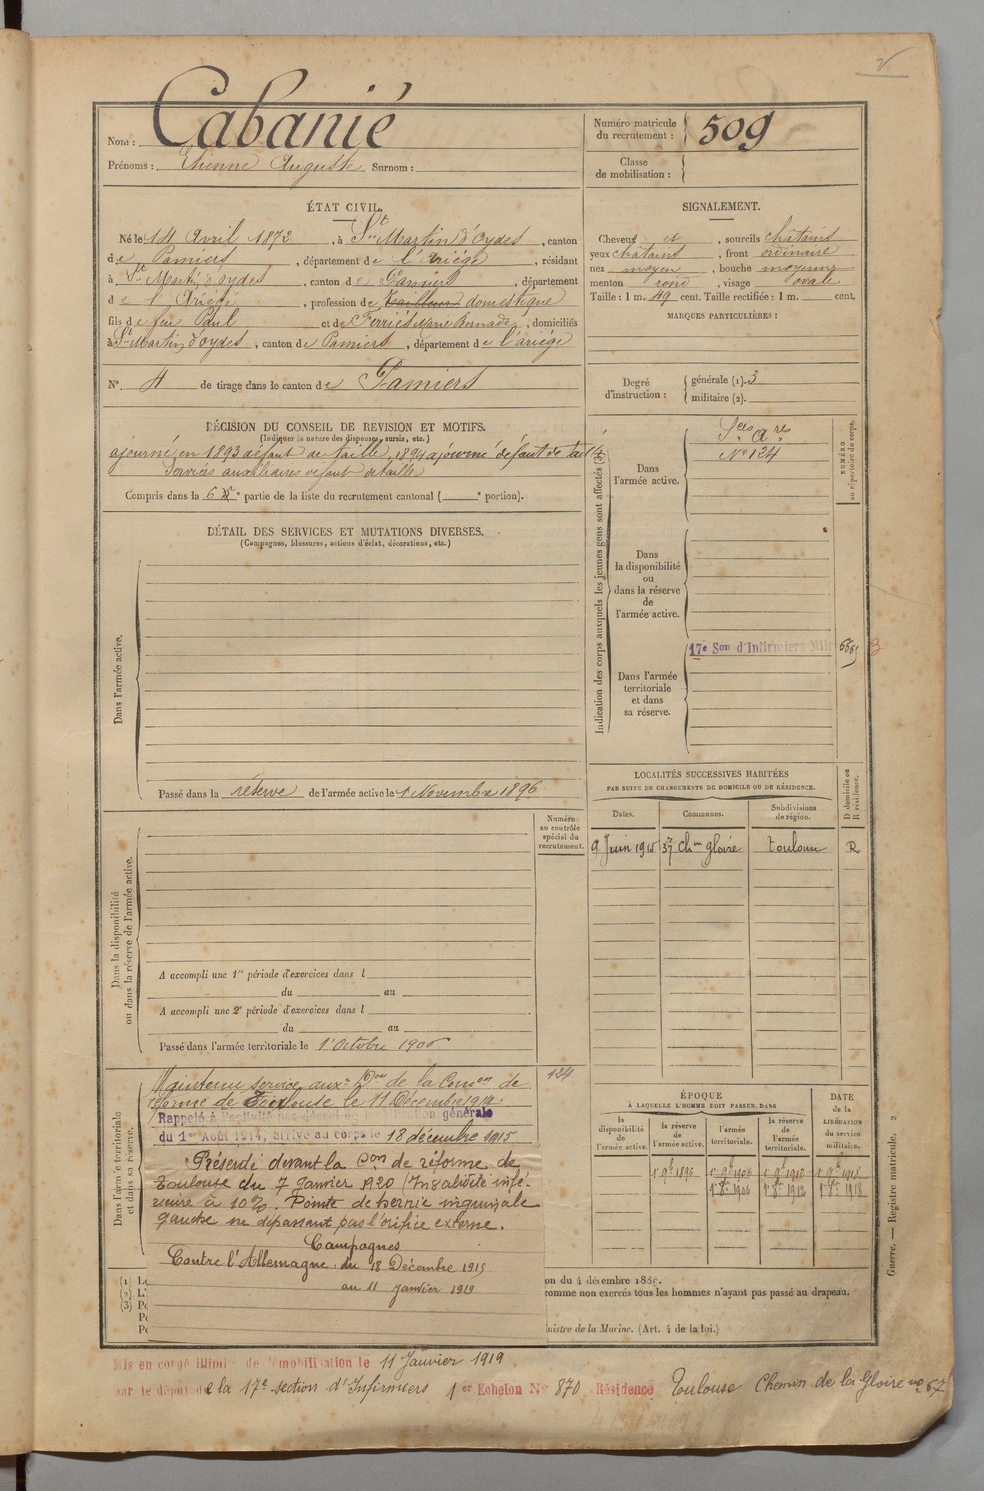 Nom : Cabanié
Prénoms : Etienne Auguste Surnom :
Numéro matricule du recrutement : 509
Classe de mobilisation :
ÉTAT CIVIL.
Né le 14 Avril 1872, à St Martin d'Oydes, canton
de Pamiers, département de l'Ariége, résidant
à St Martin d'Oydes, canton de Pamiers, département
de l'Ariége, profession de tailleur domestique
fils de feu Paul et de Ferriés Marie Bernade, domiciliés
à St Martin d'oydes, canton de Pamiers, département de l'ariége
N°. 4 de tirage dans le canton de Pamiers
SIGNALEMENT.
Cheveux et, sourcils châtains
yeux châtains, front ordinaire
nez moyen, bouche moyenne
menton rond, visage ovale
Taille : 1 m. 49 cent. Taille rectifiée : 1 m. cent.
MARQUES PARTICULIÈRES :
Degré d'instruction : générale (1). 3
militaire (2).
DÉCISION DU CONSEIL DE REVISION ET MOTIFS.
(Indiquer la nature des dispenses, sursis, etc.)
ajourné en 1893 défaut de taille, 1894 ajourné défaut de taille
Services auxiliaires défaut de taille
Compris dans la 6e partie de la liste du recrutement cantonal ( e portion).
DÉTAIL DES SERVICES ET MUTATIONS DIVERSES.
(Campagnes, blessures, actions d'éclat, décorations, etc.)
Dans l'armée active.
Passé dans la réserve de l'armée active le 1 Novembre 1896
Indication des corps auxquels les jeunes gens sont affectés
NUMÉRO au répertoire du corps.
Dans l'armée active.
Sces Ares
N° 124
Dans la disponibilité ou dans la réserve de l'armée active.
Dans l'armée territoriale et dans sa réserve.
17e Son d'Infirmiers Mil
LOCALITÉS SUCCESSIVES HABITÉES
PAR SUITE DE CHANGEMENTS DE DOMICILE OU DE RÉSIDENCE.
Dates. Communes. Subdivisions de région. D domicile ou R résidence.
9 Juin 1915 37 Chin gloire Toulouse R
Dans la disponibilité ou dans la réserve de l'armée active.
Numéro au contrôle spécial du recrutement.
A accompli une 1re période d'exercices dans l
du au
A accompli une 2e période d'exercices dans l
du au
Passé dans l'armée territoriale le 1 Octobre 1906
124
Dans l'armée territoriale et dans sa réserve.
Maintenu service auxre Don de la Comon de
réforme de Toulouse le 11 Décembre 1914
Rappelé à l'activité par décret de mobilisation générale
du 1er Août 1914, arrivé au corps le 18 décembre 1915
Présenté devant la Con de réforme de
Toulouse du 7 Janvier 1920 (Invalidité infé-
rieure à 10%. Pointe de hernie inguinale
gauche ne dépassant pas l'orifice externe.
Campagnes
Contre l'Allemagne : du 18 Décembre 1915
au 11 Janvier 1919
ÉPOQUE
À LAQUELLE L'HOMME DOIT PASSER DANS
la disponibilité de l'armée active. la réserve de l'armée active. l'armée territoriale. la réserve de l'armée territoriale.
DATE de la LIBÉRATION du service militaire.
1er 9bre 1896 1er 9bre 1906 1er 9bre 1912 1er 9bre 1918
1er 8bre 1906 1er 8bre 1912 1er 8bre 1918
Guerre. — Registre matricule. 2
(1)
(2)
(3)
on du 4 décembre 1889.
comme non exercés tous les hommes n'ayant pas passé au drapeau.
nistre de la Marine. (Art. 4 de la loi.)
Mis en congé illimité de démobilisation le 11 Janvier 1919
par le dépôt de la 17e section d'Infirmiers 1er Echelon No 870 Résidence Toulouse Chemin de la Gloire no 67